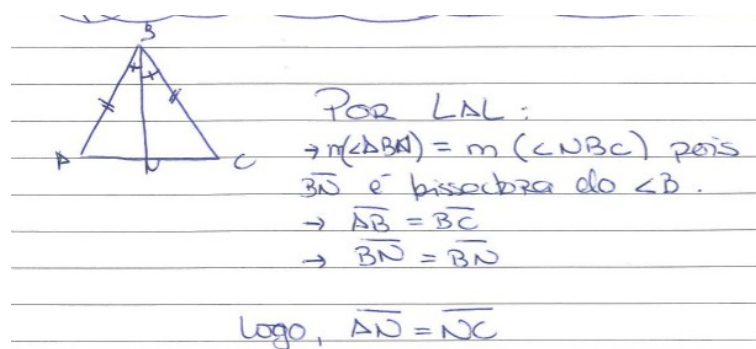 B
A N C
POR LAL:
→ m(∠ABN) = m (∠NBC) pois
B̅N̅ é bissectora do ∠B.
→ A̅B̅ = B̅C̅
→ B̅N̅ = B̅N̅
Logo, A̅N̅ = N̅C̅